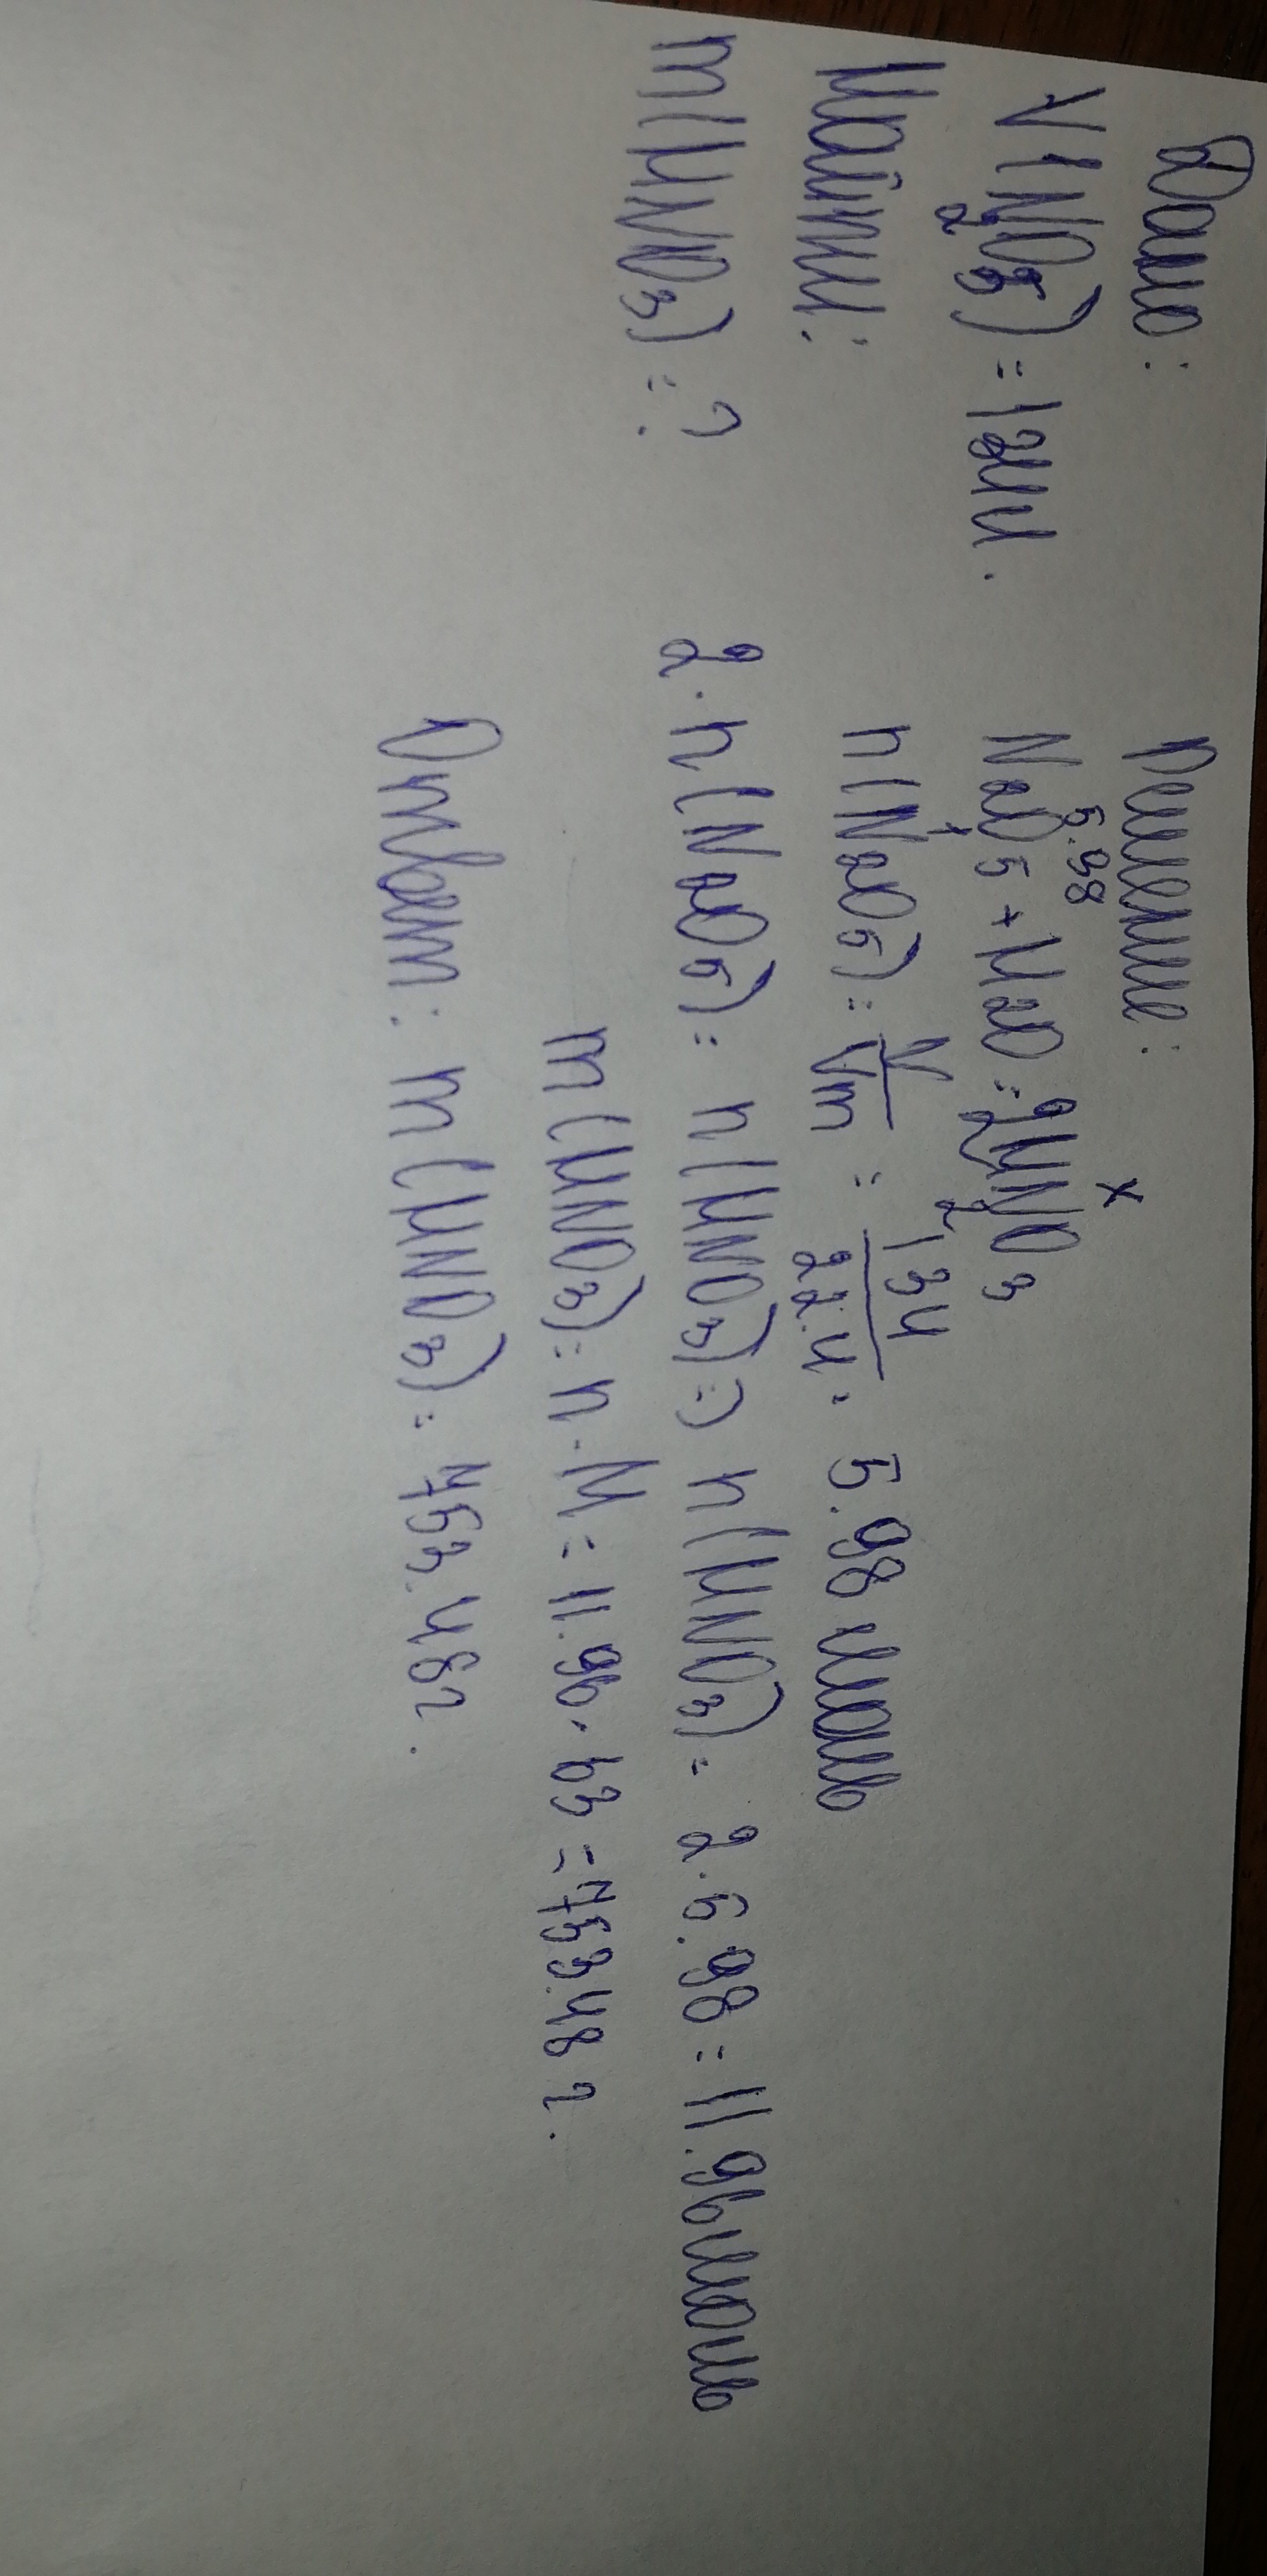 Дано:
V(N2O5) = 134л.
Найти:
m(HNO3) = ?
Решение:
5.98 x
N2O5 + H2O = 2HNO3
1 2
n(N2O5) = V/Vm = 134/22.4 = 5.98 моль
2·n(N2O5) = n(HNO3) => n(HNO3) = 2·5.98 = 11.96 моль
m(HNO3) = n·M = 11.96·63 = 753.48 г.
Ответ: m(HNO3) = 753.48г.